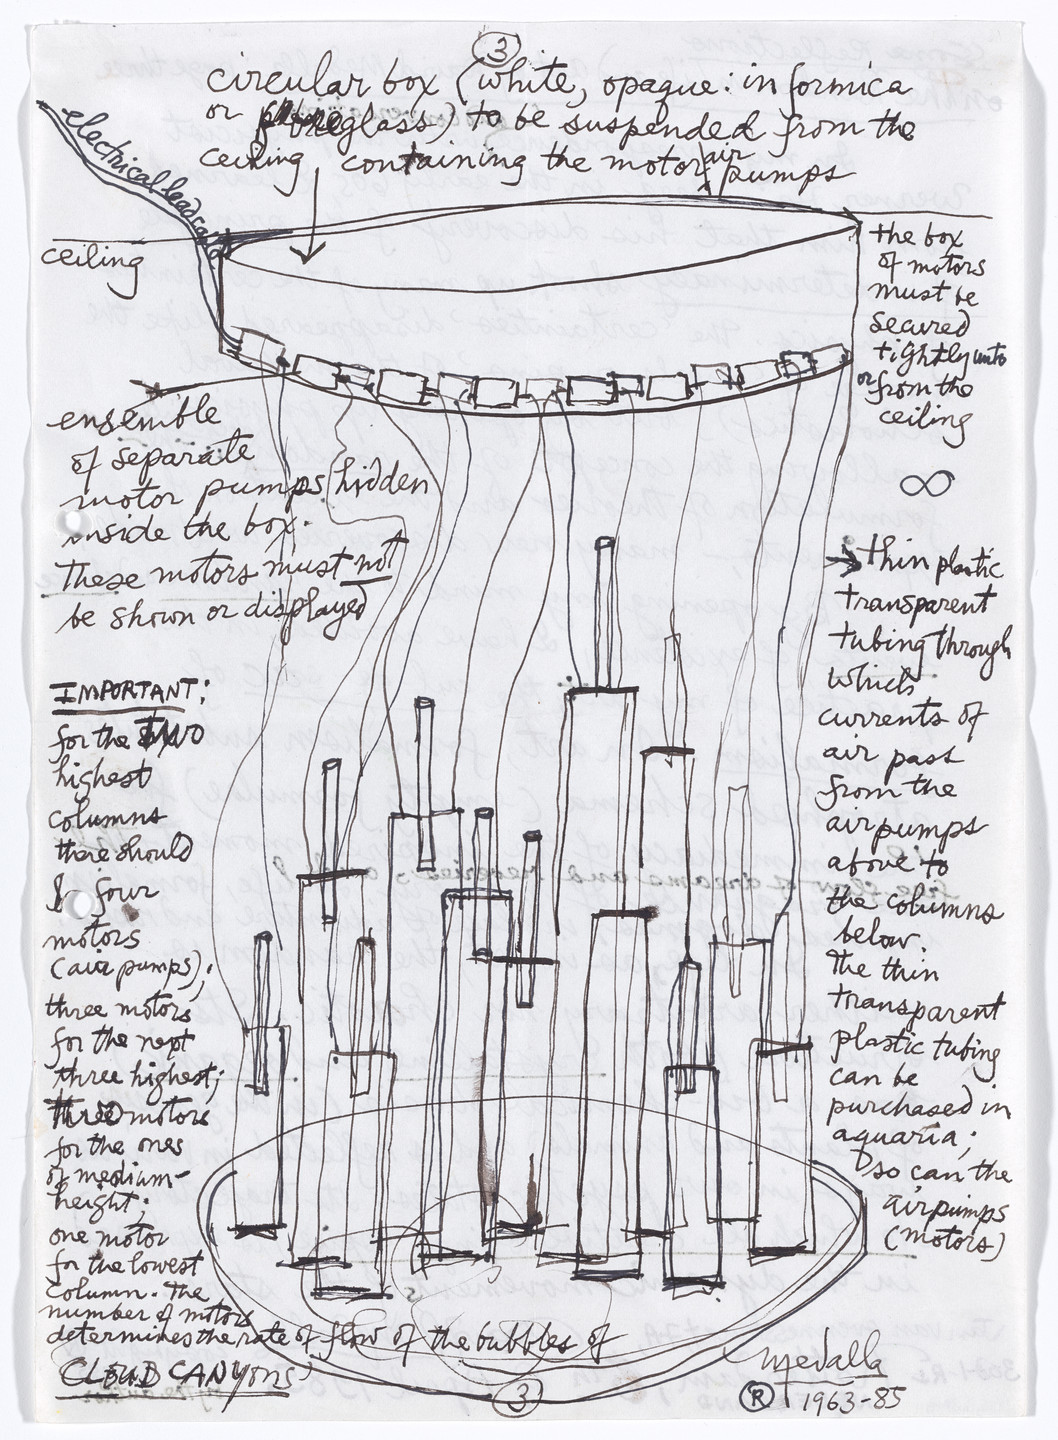 3
circular box (white, opaque: in formica
or fibreglass) to be suspended from the
ceiling containing the motor air
pumps
electrical lead
ceiling
the box
of motors
must be
secured
tightly unto
or from the
ceiling
∞
ensemble
of separate
motor pumps hidden
inside the box.
These motors must not
be shown or displayed
IMPORTANT:
for the two
highest
columns
there should
be four
motors
(air pumps);
three motors
for the next
three highest;
motors
for the ones
of medium-
height;
one motor
for the lowest
column. The
number of motors
determines the rate of flow of the bubbles of
CLOUD CANYONS
→ thin plastic
transparent
tubing through
which
currents of
air pass
from the
air pumps
above to
the columns
below.
The thin
transparent
plastic tubing
can be
purchased in
aquaria;
so can the
air pumps
(motors)
3
medalla
® 1963-85